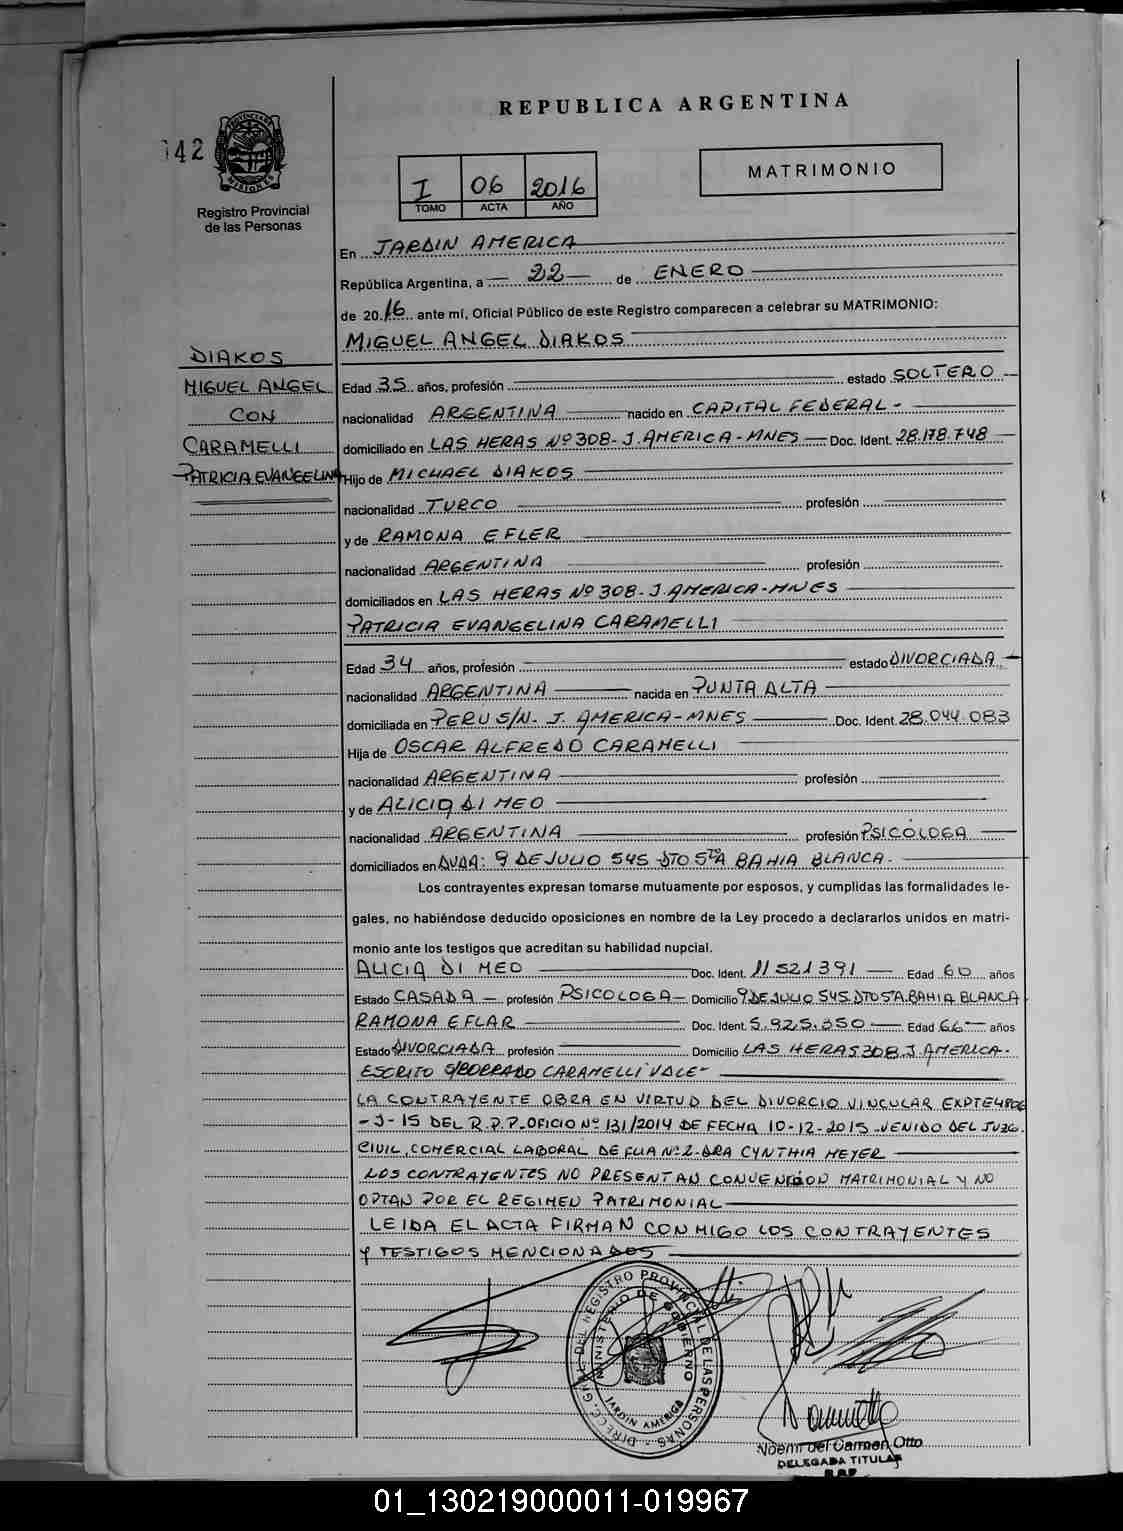 REPUBLICA ARGENTINA
142
PROVINCIA DE MISIONES
Registro Provincial
de las Personas
I 06 2016
TOMO ACTA AÑO
MATRIMONIO
En JARDIN AMERICA
República Argentina, a 22 de ENERO
de 2016 ante mí, Oficial Público de este Registro comparecen a celebrar su MATRIMONIO:
MIGUEL ANGEL DIAKOS
DIAKOS
MIGUEL ANGEL
CON
CARAMELLI
PATRICIA EVANGELINA
Edad 35 años, profesión estado SOLTERO
nacionalidad ARGENTINA nacido en CAPITAL FEDERAL-
domiciliado en LAS HERAS Nº 308- J. AMERICA-MNES Doc. Ident. 28.178.748
Hijo de MICHAEL DIAKOS
nacionalidad TURCO profesión
y de RAMONA EFLER
nacionalidad ARGENTINA profesión
domiciliados en LAS HERAS Nº 308- J. AMERICA-MNES
PATRICIA EVANGELINA CARAMELLI
Edad 34 años, profesión estado DIVORCIADA
nacionalidad ARGENTINA nacida en PUNTA ALTA
domiciliada en PERU S/N- J. AMERICA-MNES Doc. Ident. 28.044.083
Hija de OSCAR ALFREDO CARAMELLI
nacionalidad ARGENTINA profesión
y de ALICIA DI MEO
nacionalidad ARGENTINA profesión PSICOLOGA
domiciliados en AVDA: 9 DE JULIO 545 DTO 5TA BAHIA BLANCA.
Los contrayentes expresan tomarse mutuamente por esposos, y cumplidas las formalidades le-
gales, no habiéndose deducido oposiciones en nombre de la Ley procedo a declararlos unidos en matri-
monio ante los testigos que acreditan su habilidad nupcial.
ALICIA DI MEO Doc. Ident. 11 521391 Edad 60 años
Estado CASADA profesión PSICOLOGA Domicilio 9 DE JULIO 545 DTO 5TA. BAHIA BLANCA
RAMONA EFLAR Doc. Ident. 5.925.350 Edad 66 años
Estado DIVORCIADA profesión Domicilio LAS HERAS 308 J. AMERICA-
ESCRITO S/BORRADO CARAMELLI VALE-
LA CONTRAYENTE OBRA EN VIRTUD DEL DIVORCIO VINCULAR EXPTE 4806
-J-15 DEL R.P.P. OFICIO Nº 131/2014 DE FECHA 10-12-2015 VENIDO DEL JUZG.
CIVIL, COMERCIAL LABORAL DE FLIA Nº 2- DRA CYNTHIA MEYER
LOS CONTRAYENTES NO PRESENTAN CONVENCION MATRIMONIAL Y NO
OPTAN POR EL REGIMEN PATRIMONIAL
LEIDA EL ACTA FIRMAN CONMIGO LOS CONTRAYENTES
Y TESTIGOS MENCIONADOS
DIRECC. GRAL. DEL REGISTRO PROVINCIAL DE LAS PERSONAS
MINISTERIO DE GOBIERNO
JARDIN AMERICA
Noemi del Carmen Otto
DELEGADA TITULAR
01_130219000011-019967